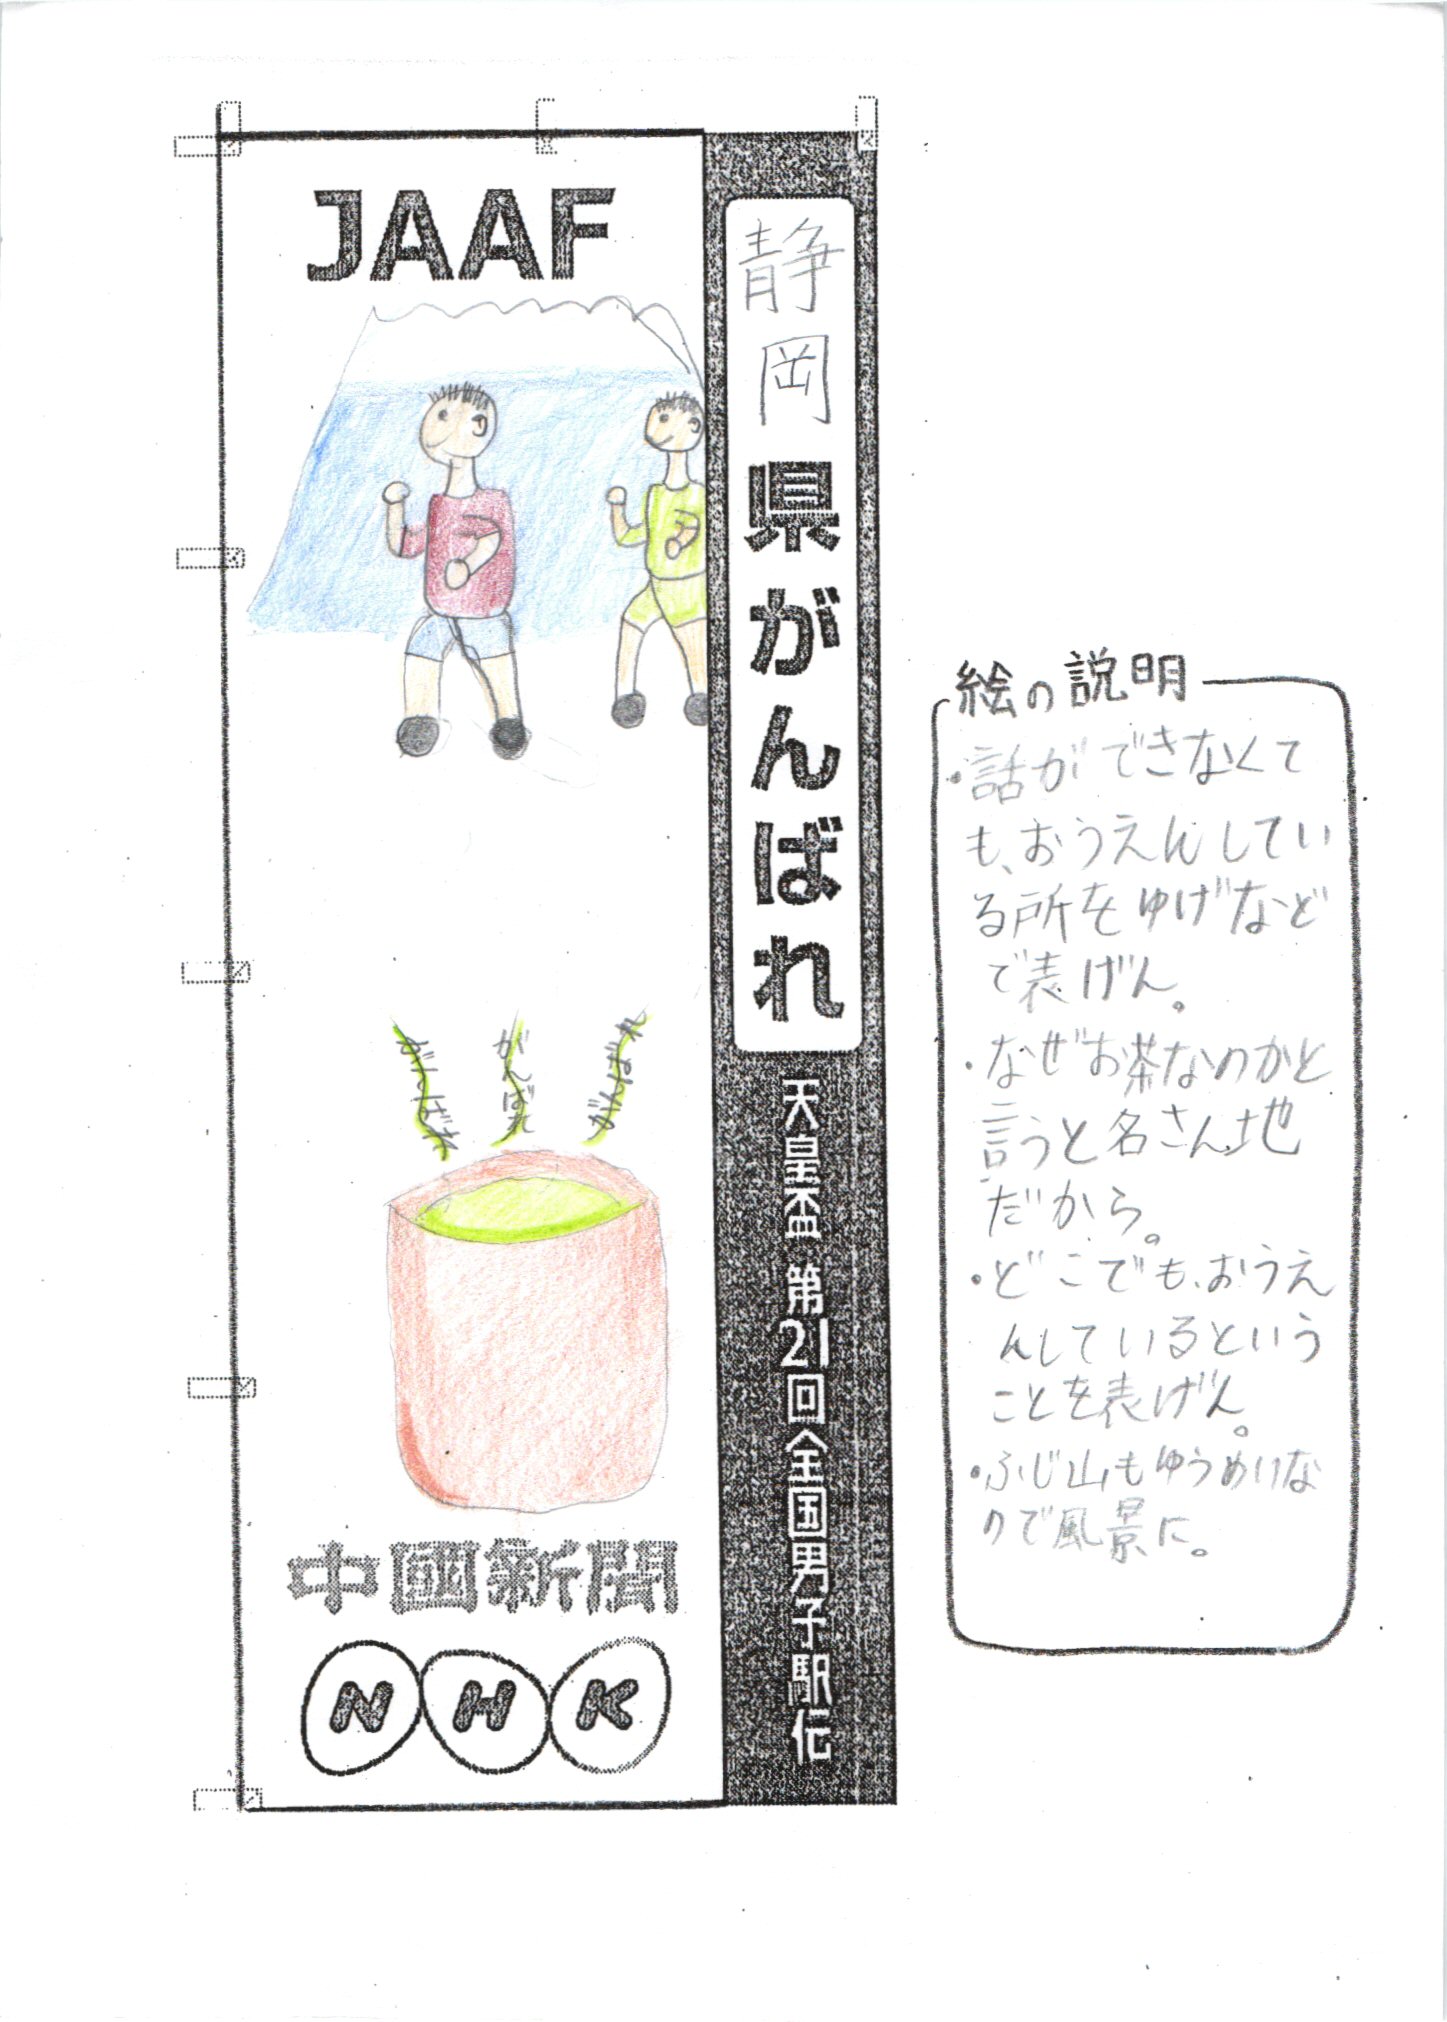 JAAF
静岡県がんばれ
天皇盃 第21回全国男子駅伝
がんばれ
がんばれ
がんばれ
中國新聞
NHK
絵の説明
・話ができなくて
も、おうえんしてい
る所をゆげなど
で表げん。
・なぜお茶なのかと
言うと名さん地
だから。
・どこでも、おうえ
んしているという
ことを表げん。
・ふじ山もゆうめいな
ので風景に。